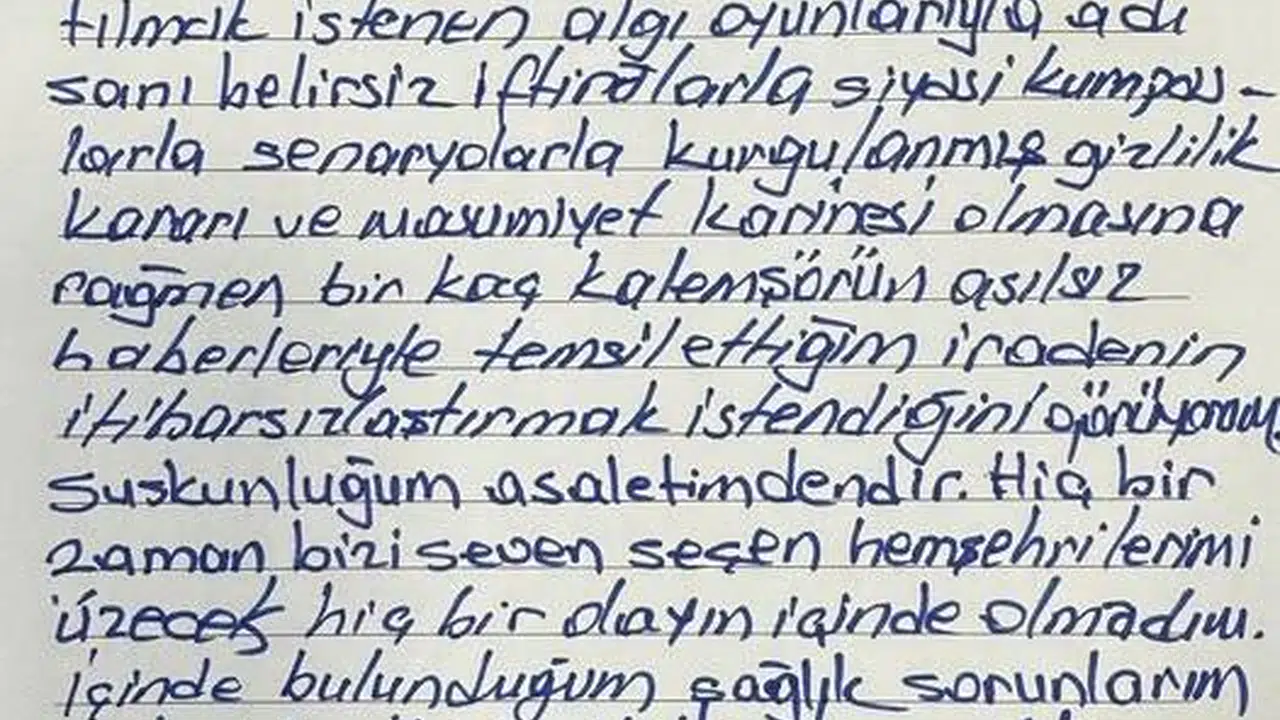 tılmak istenen algı oyunlarıyla adı
sanı belirsiz iftiralarla siyasi kumpas-
larla senaryolarla kurgulanmış gizlilik
kararı ve masumiyet karinesi olmasına
rağmen bir kaç kalemşörün asılsız
haberleriyle temsil ettiğim iradenin
itibarsızlaştırmak istendiğini görüyorum
Suskunluğum asaletimdendir. Hiç bir
zaman bizi seven seçen hemşehrilerimi
üzecek hiç bir olayın içinde olmadım.
İçinde bulunduğum sağlık sorunlarım